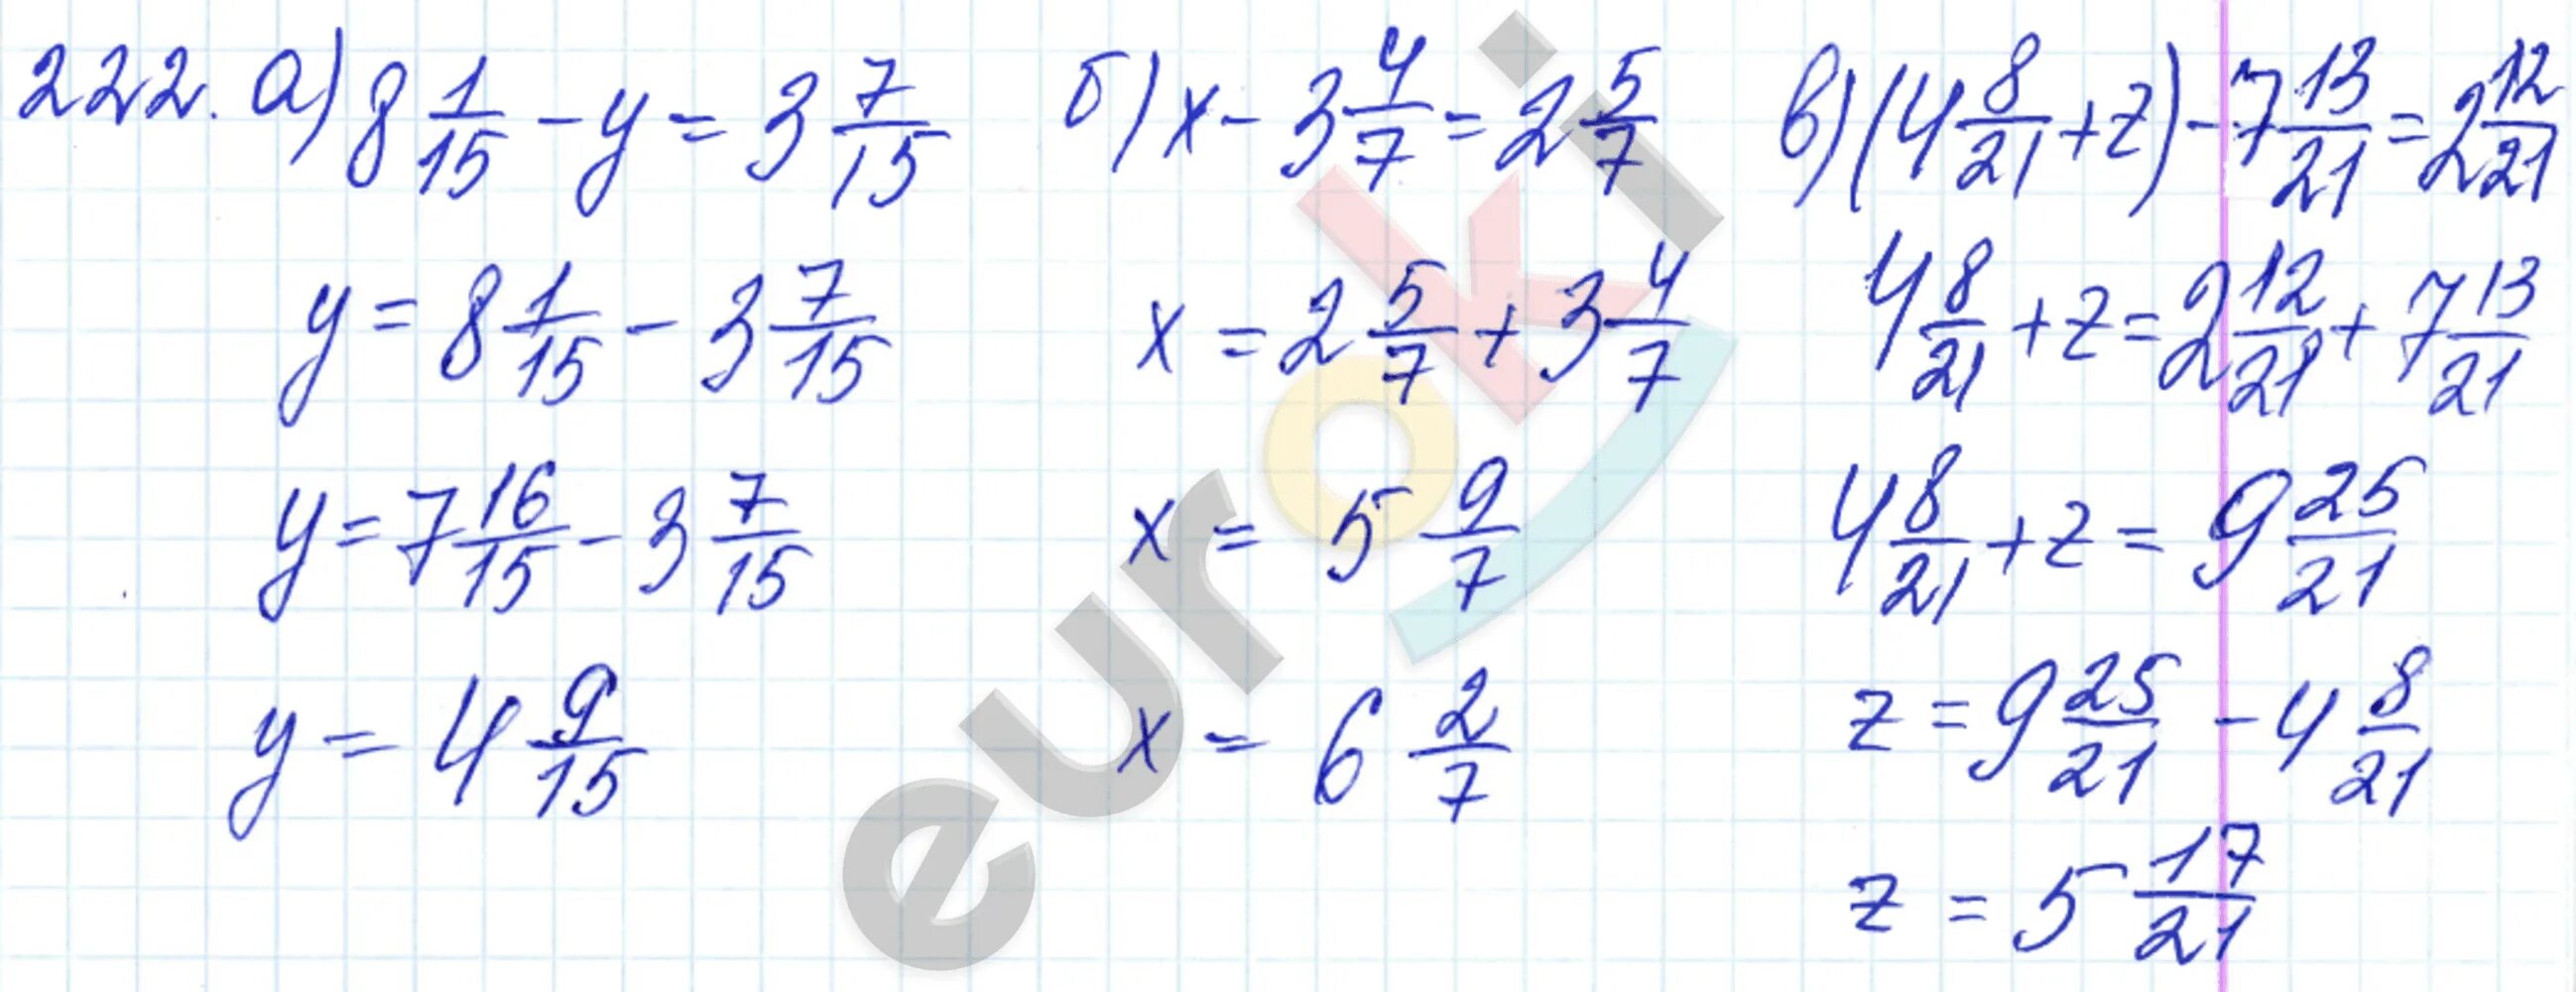 222. а) 8 1/15 - y = 3 7/15
y = 8 1/15 - 3 7/15
y = 7 16/15 - 3 7/15
y = 4 9/15
б) x - 3 4/7 = 2 5/7
x = 2 5/7 + 3 4/7
x = 5 9/7
x = 6 2/7
в) (4 8/21 + z) - 7 13/21 = 2 12/21
4 8/21 + z = 2 12/21 + 7 13/21
4 8/21 + z = 9 25/21
z = 9 25/21 - 4 8/21
z = 5 17/21
euroki